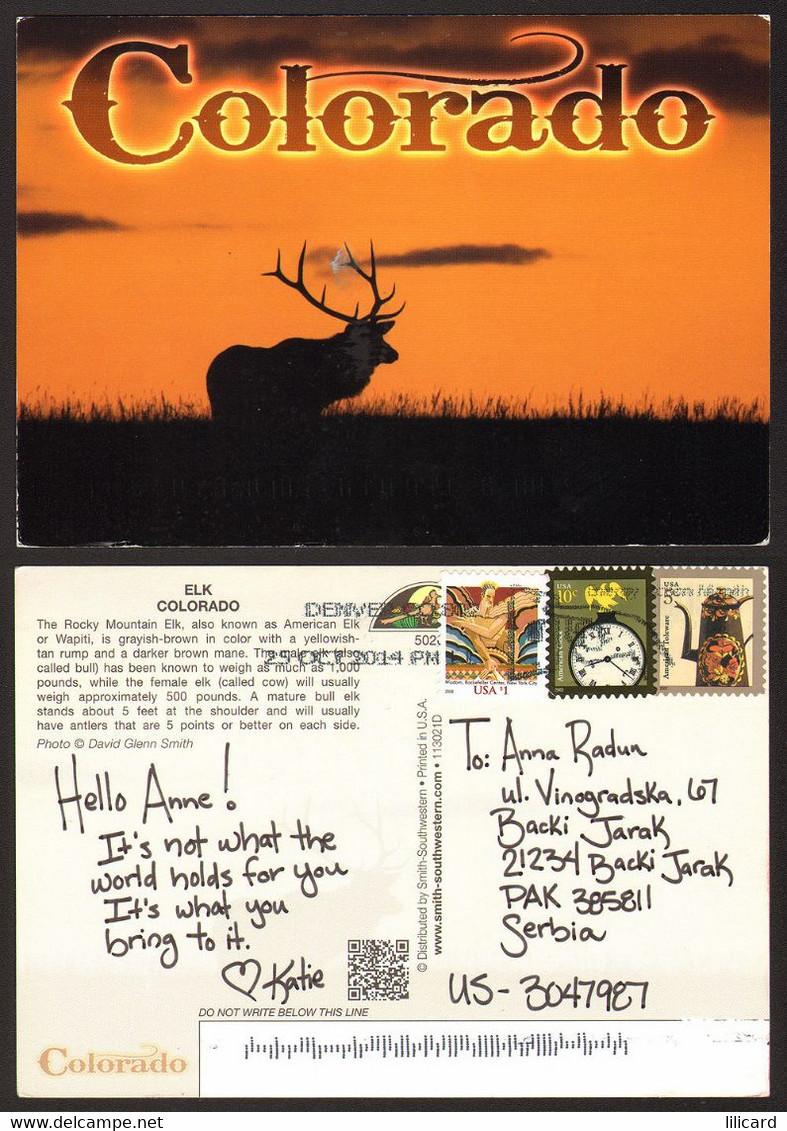 Colorado
ELK
COLORADO
The Rocky Mountain Elk, also known as American Elk
or Wapiti, is grayish-brown in color with a yellowish-
tan rump and a darker brown mane. The male elk (also
called bull) has been known to weigh as much as 1,000
pounds, while the female elk (called cow) will usually
weigh approximately 500 pounds. A mature bull elk
stands about 5 feet at the shoulder and will usually
have antlers that are 5 points or better on each side.
Photo © David Glenn Smith
DENVER
25 OCT 2014 PM
5023
Wisdom, Rockefeller Center, New York City
2008 USA $1
USA
10c
American Clock
USA
5c
American Toleware
Hello Anne!
It's not what the
world holds for you
It's what you
bring to it.
♡ Katie
© Distributed by Smith-Southwestern • Printed in U.S.A.
www.smith-southwestern.com • 113021D
To: Anna Radun
ul. Vinogradska, 67
Backi Jarak
21234 Backi Jarak
PAK 385811
Serbia
US-3047987
DO NOT WRITE BELOW THIS LINE
Colorado
lilicard